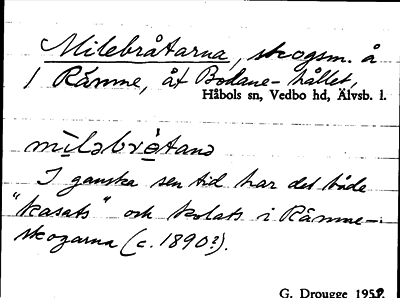 Milebråtarna, skogsm. å
1 Rämne, åt Bodane-hållet,
Håbols sn, Vedbo hd, Älvsb. l.
mìləbrɵ̀tanə
I ganska sen tid har det både
"kasats" och kolats i Rämne-
skogarna (c. 1890?).
G. Drougge 1959.